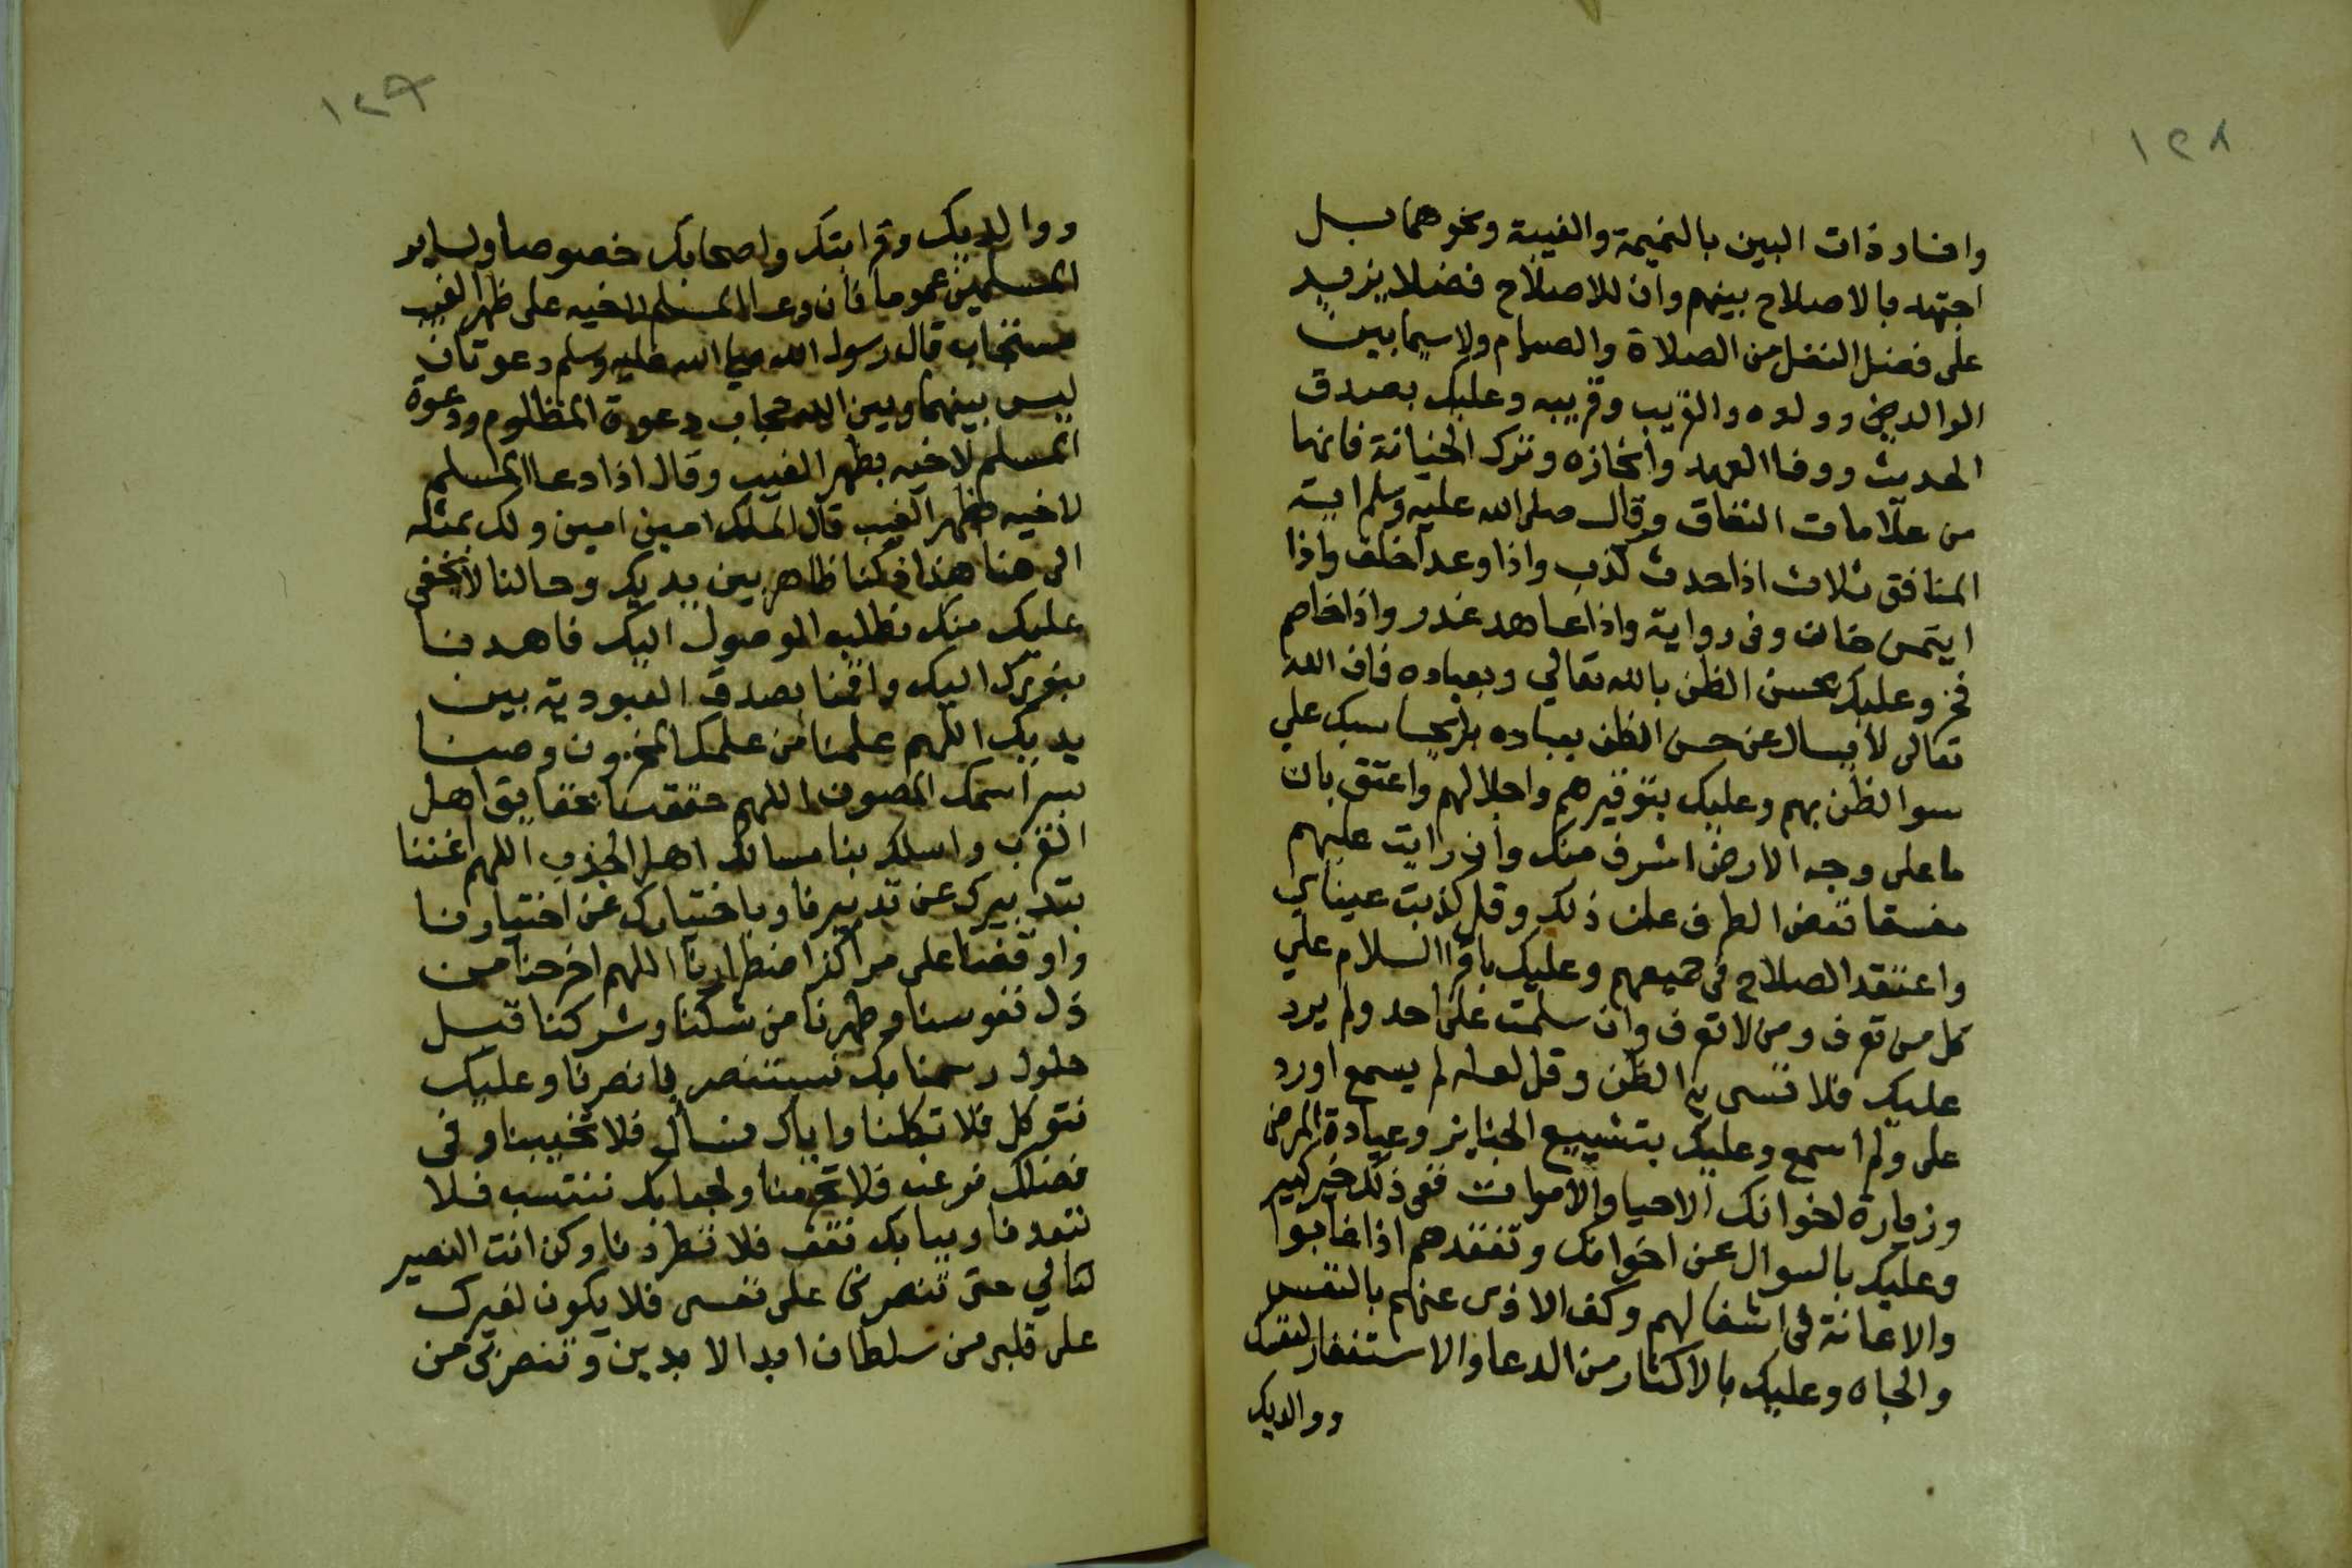 ١٢٨
وافساد ذات البين بالنميمة والغيبة ونحوهما بل
اجتهد بالاصلاح بينهم وان للاصلاح فضلا يزيد
على فضل النفل من الصلاة والصيام ولا سيما بين
الوالدين وولده والقريب وقريبه وعليك بصدق
الحديث ووفا العهد وانجازه وترك الخيانة فانها
من علامات النفاق وقال صلى الله عليه وسلم اية
المنافق ثلاث اذا حدث كذب واذا وعد اخلف واذا
ايتمن خان وفى رواية واذا عاهد غدر واذا خاصم
فجر وعليك بحسن الظن بالله تعالي وبعباده فان الله
تعالى لا يسال عن حسن الظن بعباده بل يحاسبك علي
سوا لظن بهم وعليك بتوقيرهم واجلالهم واعتق بان
ما على وجه الارض اشرف منك وان رايت عليهم
مفسقا فغض الطرف علن ذلك وقل كذبت عيناي
واعتقد الصلاح فى جميعهم وعليك باقرا السلام علي
كل من تعرف ومن لا تعرف وان سلمت على احد ولم يرد
عليك فلا تسى به الظن وقل لعله لم يسمع اورد
على ولم اسمع وعليك بتشييع الجنايز وعيادة المرضى
وزيارة اخوانك الاحيا والاموات ففى ذلك خير كبير
وعليك بالسوال عن اخوانك وتفقدهم اذا غابوا
والاعانة فى اشغالهم وكف الاذى عنهم بالنفس
والجاه وعليك بالاكثار من الدعا والاستغفار لنفسك
ووالديك
١٢٩
ووالديك وقرابتك واصحابك خصوصا ولساير
المسلمين عموما فان دعا المسلم لاخيه على ظهر الغيب
مستجاب قال رسول الله صلى الله عليه وسلم دعوتان
ليس بينهما وبين الله حجاب دعوة المظلوم ودعوة
المسلم لاخيه بظهر الغيب وقال اذا دعا المسلم
لاخيه بظهر الغيب قال الملك امين امين ولك بمثله
الى هنا هذا ذلنا ظاهر بين يديك وحالنا لا يخفى
عليك منك نطلب الوصول اليك فاهدنا
بنورك اليك واقمنا بصدق العبودية بين
يديك اللهم علمنا من علمك المخزون وصنا
بسر اسمك المصون اللهم حققنا بحقايق اهل
القرب واسلك بنا مسالك اهل الجذب اللهم اغننا
بتدبيرك عن تدبيرنا وباختيارك عن اختيارنا
واوقفنا على مراكز اضطرارنا اللهم اخرجنا من
ذل نفوسنا وطهرنا من شكنا وشركنا قبل
حلول رمسنا بك نستنصر فانصرنا وعليك
نتوكل فلا تكلنا واياك نسال فلا تخيبنا وفى
فضلك نرغب فلا تحرمنا ولجنابك ننتسب فلا
تبعدنا وببابك نقف فلا تطردنا وكن انت النصير
لنا لي حتى تنصرنى على نفسى فلا يكون لغيرك
على قلبى من سلطان ابد الابدين وتنصر بى من